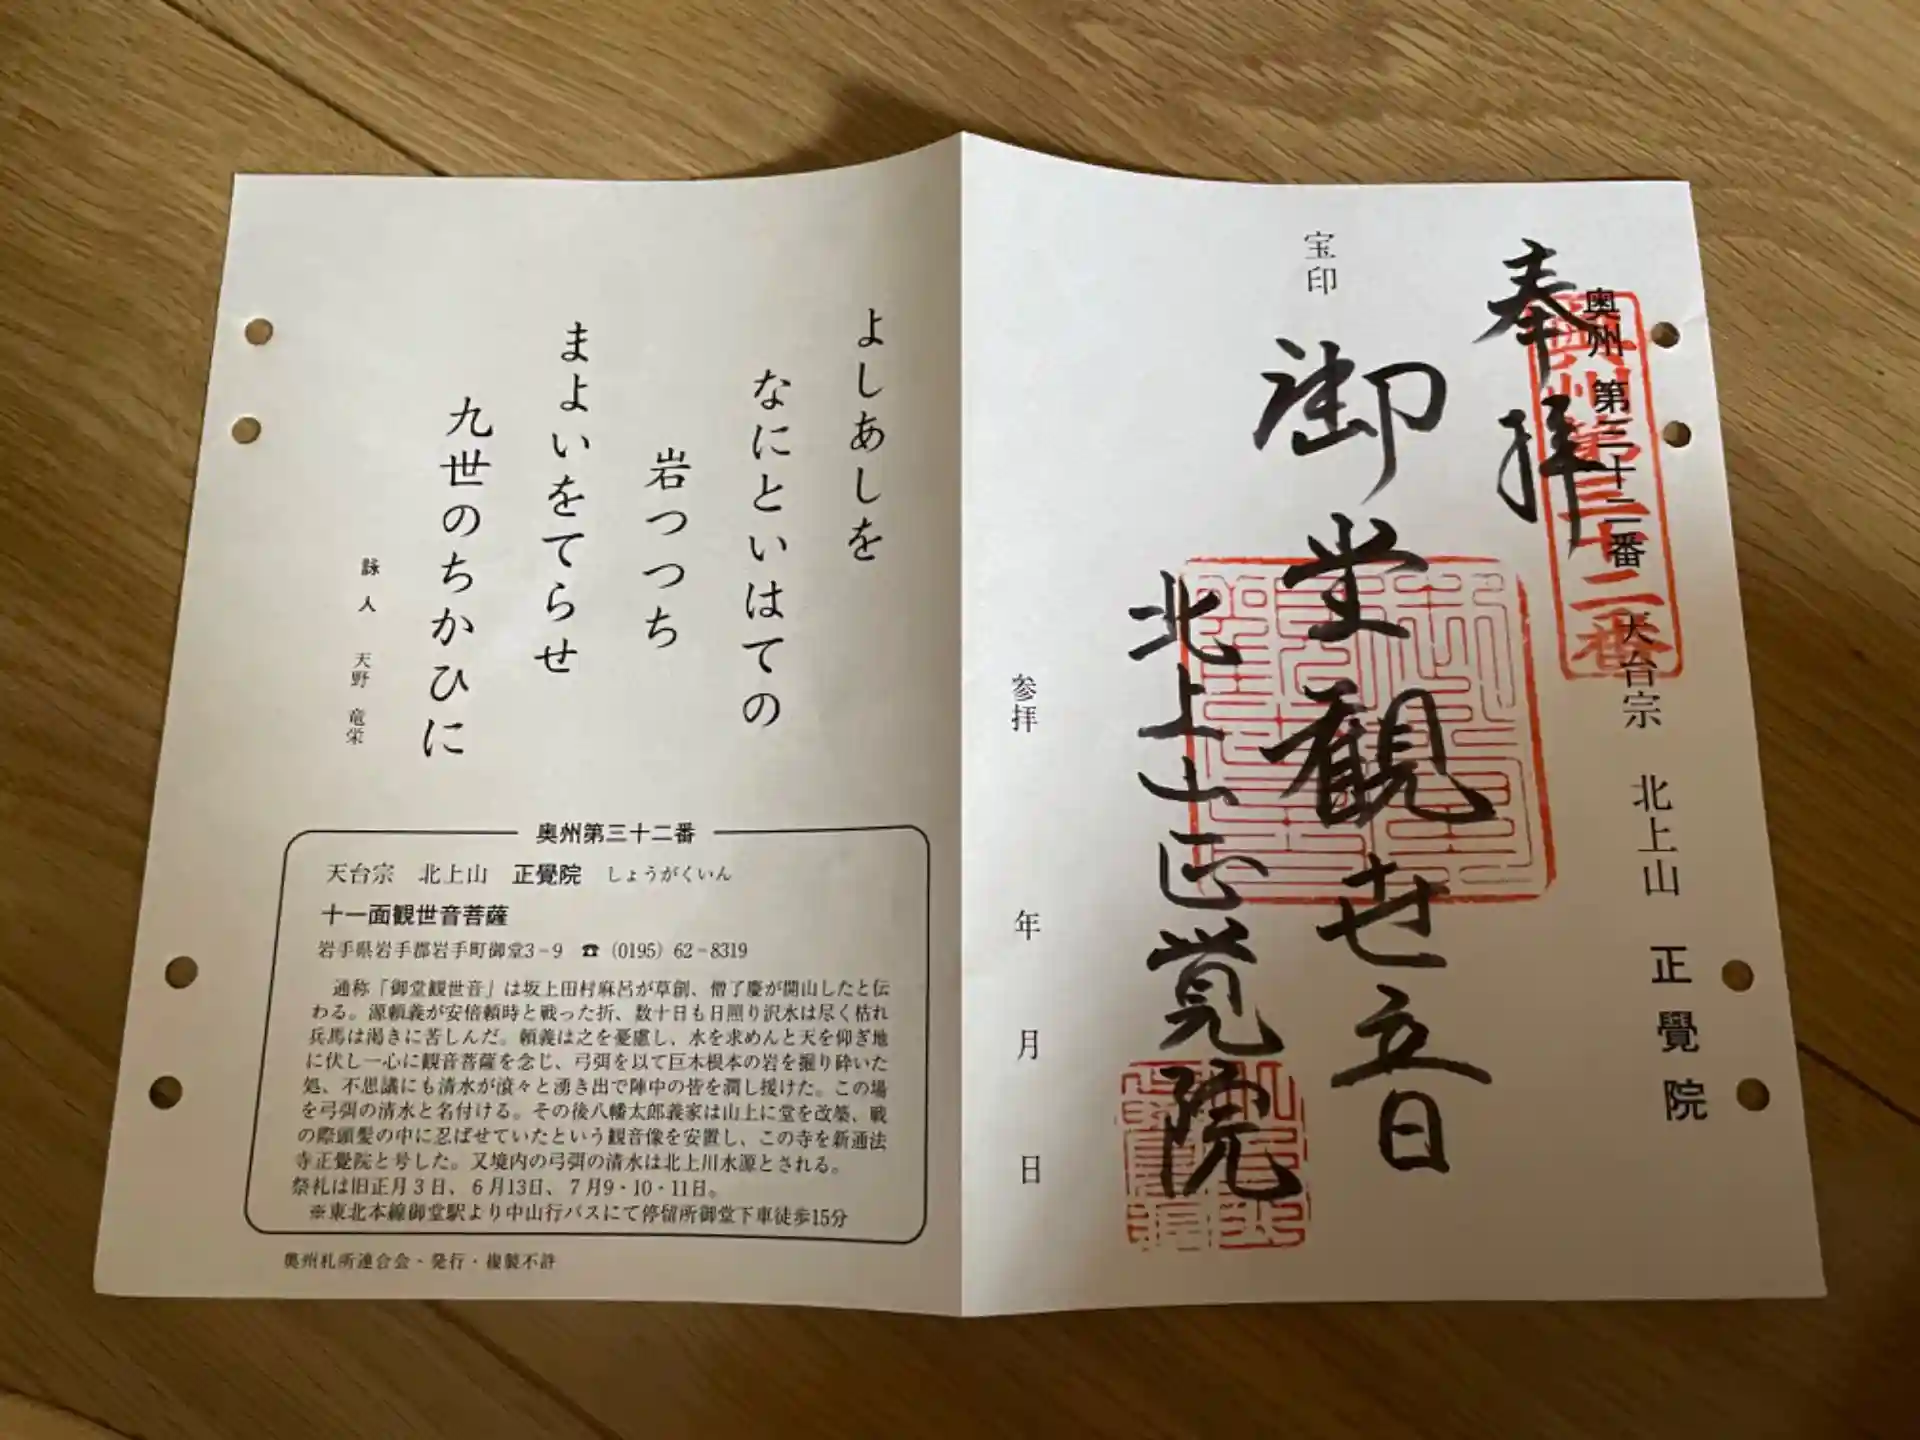 奥州 第三十二番 天台宗 北上山 正覺院
奥州第三十二番
奉拝
宝印
御堂観世音
北上山正覚院
参拝 年 月 日
よしあしを
なにといはての
岩つつち
まよいをてらせ
九世のちかひに
詠人 天野 竜栄
奥州第三十二番
天台宗 北上山 正覺院 しょうがくいん
十一面観世音菩薩
岩手県岩手郡岩手町御堂3－9 ☎ (0195) 62－8319
通称「御堂観世音」は坂上田村麻呂が草創、僧了慶が開山したと伝
わる。源頼義が安倍頼時と戦った折、数十日も日照り沢水は尽く枯れ
兵馬は渇きに苦しんだ。頼義は之を憂慮し、水を求めんと天を仰ぎ地
に伏し一心に観音菩薩を念じ、弓弭を以て巨木根本の岩を掘り砕いた
処、不思議にも清水が滾々と湧き出で陣中の皆を潤し援けた。この場
を弓弭の清水と名付ける。その後八幡太郎義家は山上に堂を改築、戦
の際頭髪の中に忍ばせていたという観音像を安置し、この寺を新通法
寺正覺院と号した。又境内の弓弭の清水は北上川水源とされる。
祭礼は旧正月３日、６月13日、７月9・10・11日。
※東北本線御堂駅より中山行バスにて停留所御堂下車徒歩15分
奥州札所連合会・発行・複製不許